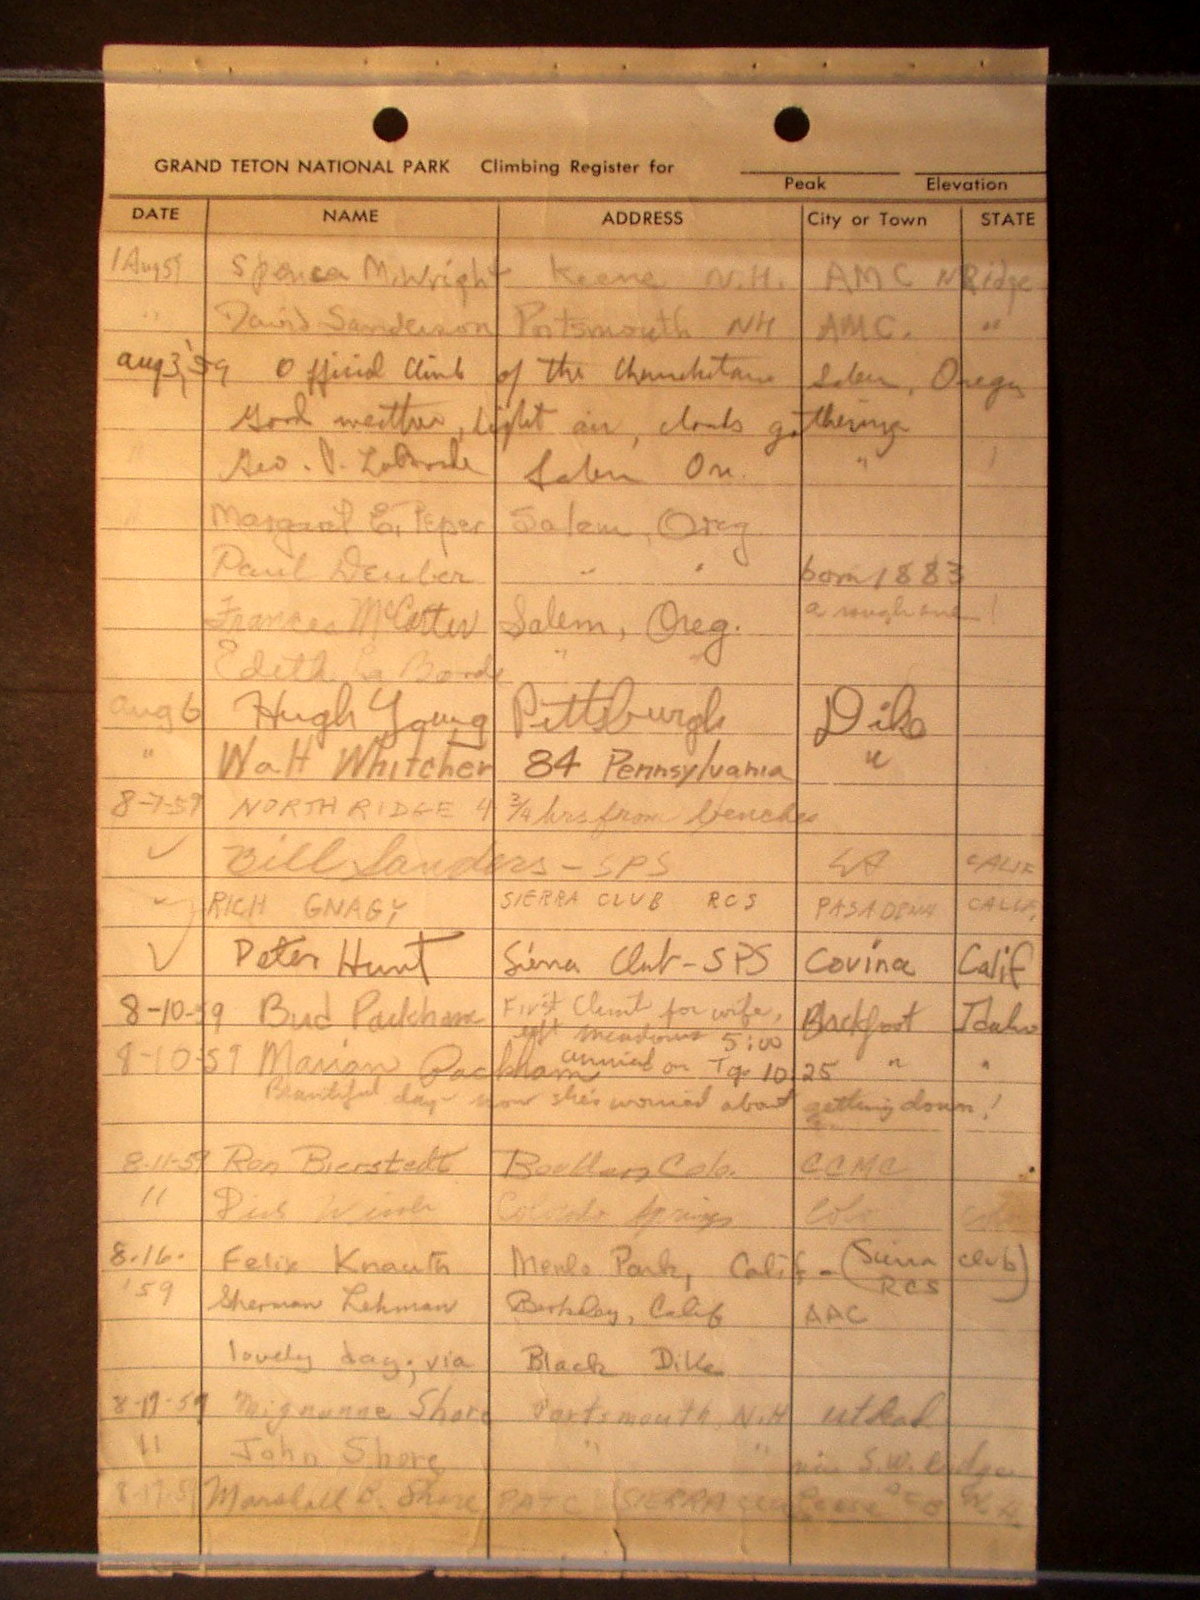 GRAND TETON NATIONAL PARK Climbing Register for
Peak Elevation
DATE NAME ADDRESS City or Town STATE
1 Aug 59 Spencer M. Wright Keene N.H. AMC N Ridge
" David Sanderson Portsmouth NH AMC. "
Aug 3, '59 Official Climb of the Chemeketans Salem, Oregon
Good weather, light air, clouds gathering
" Geo. Salem Or. "
" Margaret E. Peper Salem, Oreg
Paul Deuber " " born 1883
Frances McCarter Salem, Oreg. a rough one!
Edith La Borde " "
Aug 6 Hugh Young Pittsburgh Dike
" Walt Whitcher 84 Pennsylvania "
8-7-59 NORTH RIDGE 4 3/4 hrs from benches
✓ Bill Sanders - SPS LA CALIF
✓ RICH GNAGY SIERRA CLUB RCS PASADENA CALIF.
✓ Peter Hunt Sierra Club - SPS Covina Calif
8-10-59 Bud Packham First Climb for wife, Blackfoot Idaho
left meadows 5:00
8-10-59 Marian Packham arrived on Top 10 25 " "
Beautiful day - now she's worried about getting down!
8-11-59 Ron Bierstedt Boulder, Colo. CCMC
11 Dick Colorado Springs Colo
8.16. Felix Knauth Menlo Park, Calif - (Sierra club)
RCS
'59 Sherman Lehman Berkeley, Calif AAC
lovely day; via Black Dike
8-19-59 Mignonne Shore Portsmouth, N.H.
11 John Shore " " via S.W. Ridge
Marshall Shore PATC SIERRA